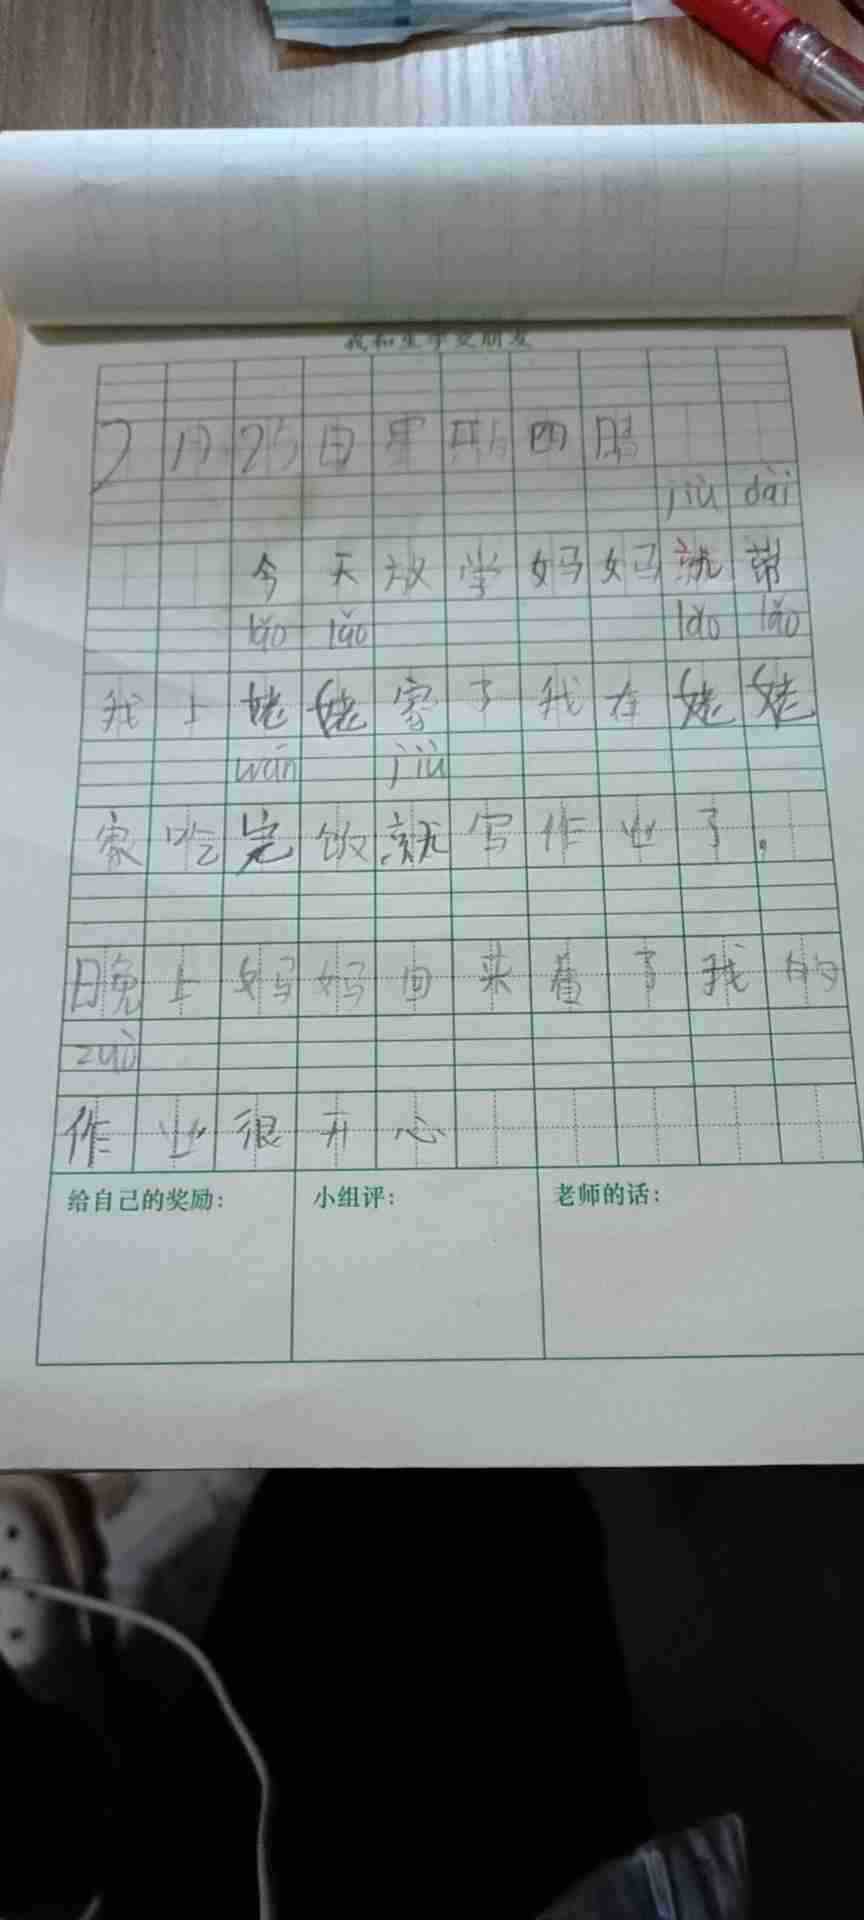 我和生字交朋友
2月25日星期四晴
jiù dài
今天放学妈妈就带
lǎo lǎo lǎo lǎo
我上姥姥家了我在姥姥
wán jiù
家吃完饭就写作业了。
晚上妈妈回来看了我的
zuò
作业很开心
给自己的奖励: 小组评: 老师的话: